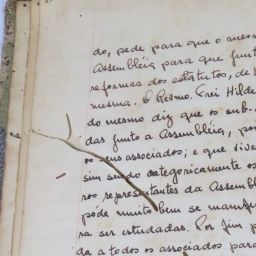 do, pede para que o mesm
Assembléia para que junt
reformas dos estatutos, de
mesma. O Revmo. Frei Hilde
do mesmo diz que os sub-
das junto a Assembléia, po
os seus associados; e que vive
sim sendo categoricamente o
ros, representantes da Assembl
pode muito bem se manife
ra ser estudadas. Por fim p
da a todos os associados para